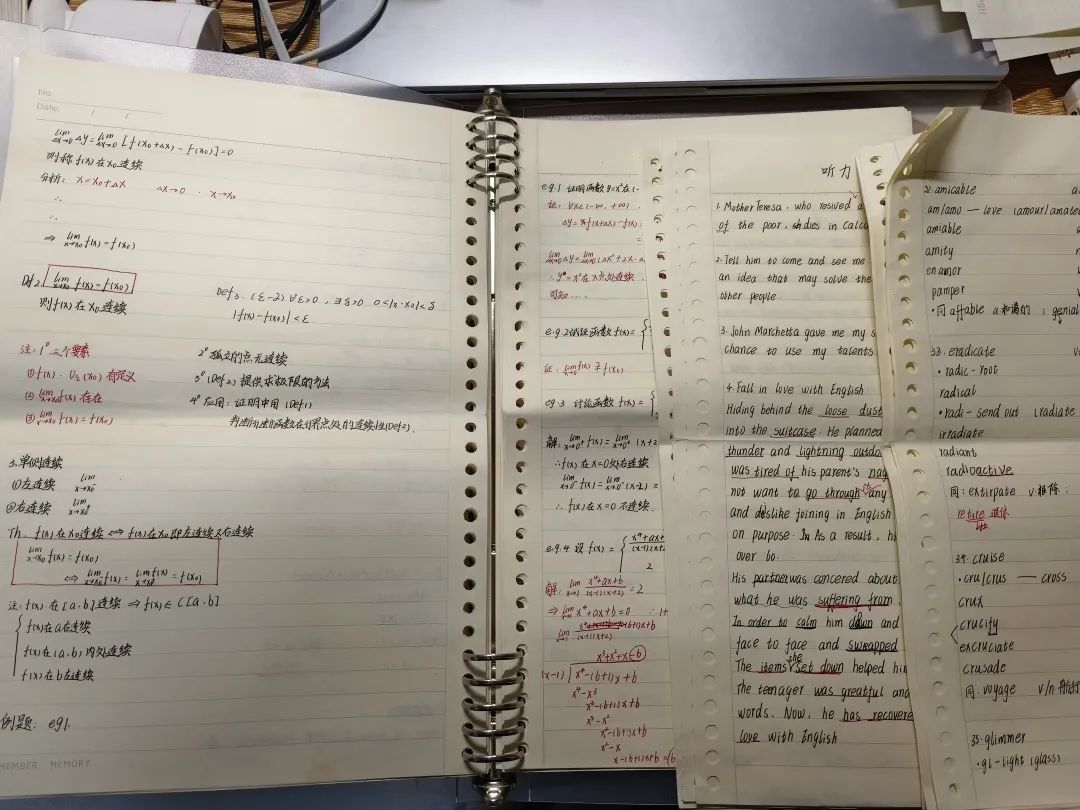 No.
Date: / /
lim Δx→0 Δy = lim Δx→0 [f(x₀+Δx) - f(x₀)] = 0
则称f(x)在x₀连续
分析: x = x₀+Δx Δx→0 · x→x₀
∴
∴
⇒ lim x→x₀ f(x) = f(x₀)
Def 2. lim x→x₀ f(x) = f(x₀)
则f(x)在x₀连续
Def 3. (ε-δ) ∀ε>0, ∃δ>0 0<|x-x₀|<δ
|f(x)-f(x₀)|<ε
注: 1° 三个要素
① f(x) · 有定义
② lim x→x₀ f(x) 存在
③ lim x→x₀ f(x) = f(x₀)
2° 孤立的点无连续
3° (Def2) 提供求极限的方法
4° 应用: 证明中用 (Def1)
判断分段函数在分界点处的连续性(Def2).
3. 单侧连续
①左连续 lim x→x₀⁻
②右连续 lim x→x₀⁺
Th. f(x)在x₀连续 ⇔ f(x)在x₀即左连续又右连续
lim x→x₀ f(x) = f(x₀)
⇔ lim x→x₀⁻ f(x) = lim x→x₀⁺ f(x) = f(x₀)
注: f(x)在[a,b]连续 ⇒ f(x) ∈ C[a,b]
f(x)在a右连续
f(x)在(a,b)内处连续
f(x)在b左连续
例题: eg1.
MEMBER MEMORY
e.g.1 证明函数y=x²在(-
证: ∀x∈(-∞,+∞)
Δy = f(x+Δx)-f(x)
=
lim Δx→0 Δy = lim Δx→0 (Δx²+2x·Δ
∴ y=x²在x点处连续
可知....
e.g.2 试证函数f(x)= {
证: lim x→0 f(x) ≠ f(x₀)
eg.3 讨论函数f(x)= {
解: lim x→0⁺ f(x) = lim x→0⁺ (x+2
∴ f(x)在x=0处右连续
lim x→0⁻ f(x) = lim x→0⁻ (x-2) =
∴ f(x)在x=0 不连续.
e.g.4 设f(x)= { x⁴+ax+ / (x-1)(x+2
2
解: lim x→1 x⁴+ax+b / (x-1)(x+2) = 2
⇒ lim x→1 x⁴+ax+b = 0 ∴ 1+
lim x→1 x⁴-(b+1)x+b / (x-1)(x+2)
x³+x²+x-b
(x-1) x⁴-(b+1)x+b
x⁴-x³
x³-(b+1)x+b
x³-x²
x²-(b+1)x+b
x²-x
x-(b+1)x+b = (b
听力
1. Mother Teresa, who resived a
of the poor, dies in Calcu
2. Tell him to come and see me
an idea that may solve the
other people.
3. John Marchetta gave me my s
chance to use my talents
4. Fall in love with English
Hiding behind the loose dust
into the suitcase. He planned
thunder and lightning outdo
was tired of his parent's nag
not want to go through any
and dislike joining in English
on purpose. In As a result, hi
over bo.
His partner was concered about
what he was suffering from.
In order to calm him down and
face to face and swapped
The items the set down helped him
the teenager was greatful and
words. Now, he has recovere
love with English
32. amicable a
am/amo — love (amour/amate
amiable
amity
enamor
pamper
•同 affable a 和蔼的 ; genial
33. eradicate v
• radic - root
radical
•radi - send out (radiate
irradiate
radiant
radioactive
同: extirpate v 根除;
retire 退休
34. cruise
•cru/crus — cross
crux
crucify
excruciate
crusade
同: voyage v/n 航行
35. glimmer
•gl - light (glass)